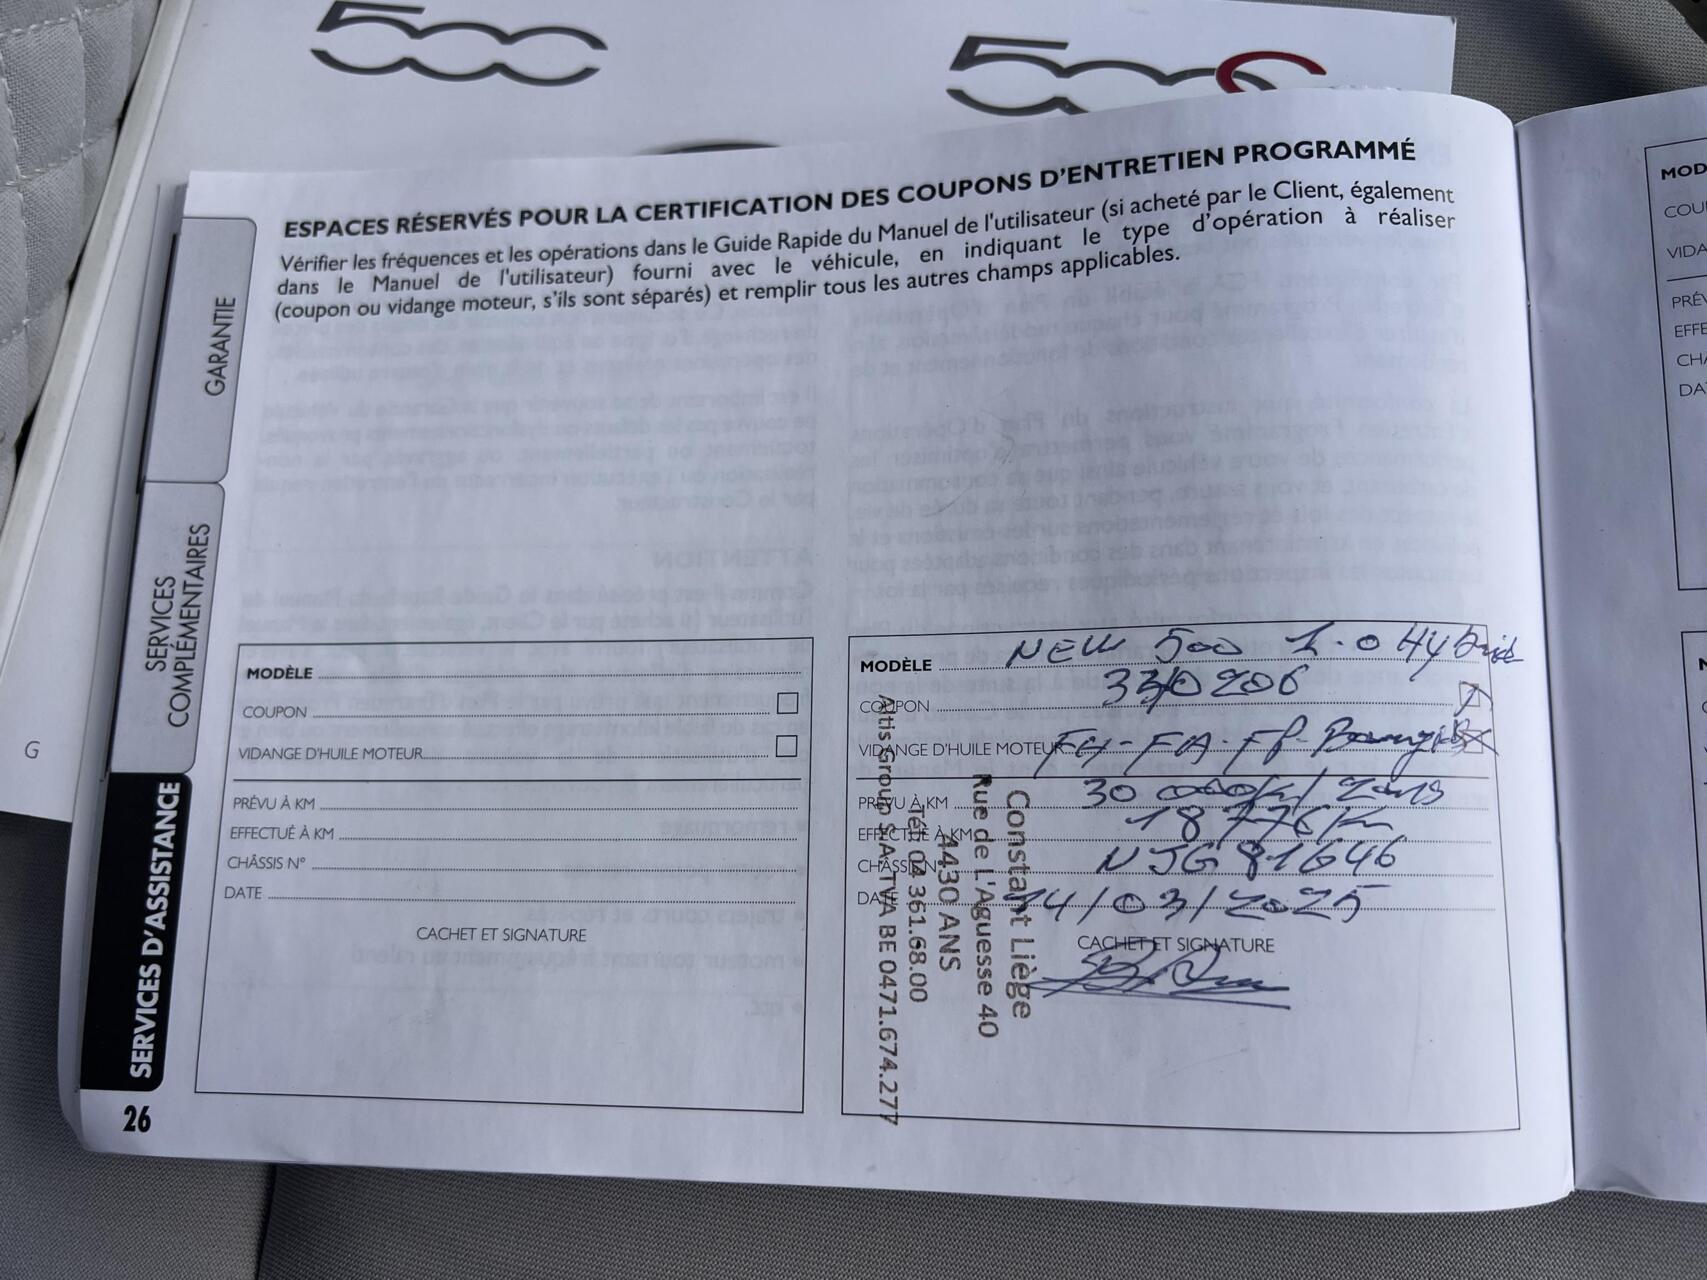 500
500C
ESPACES RÉSERVÉS POUR LA CERTIFICATION DES COUPONS D'ENTRETIEN PROGRAMMÉ
Vérifier les fréquences et les opérations dans le Guide Rapide du Manuel de l'utilisateur (si acheté par le Client, également
dans le Manuel de l'utilisateur) fourni avec le véhicule, en indiquant le type d'opération à réaliser
(coupon ou vidange moteur, s'ils sont séparés) et remplir tous les autres champs applicables.
GARANTIE
SERVICES
COMPLÉMENTAIRES
SERVICES D'ASSISTANCE
26
G
MODÈLE
COUPON
VIDANGE D'HUILE MOTEUR
PRÉVU À KM
EFFECTUÉ À KM
CHÂSSIS N°
DATE
CACHET ET SIGNATURE
MODÈLE NEW 500 1.0 Hybrid
COUPON 330206
VIDANGE D'HUILE MOTEUR FH-FA-FP-
PRÉVU À KM 30 000K/2ans
EFFECTUÉ À KM 18776Km
CHÂSSIS N° NJG81646
DATE 14/03/2025
CACHET ET SIGNATURE
Constant Liège
Rue de L'Aguesse 40
4430 ANS
Tél: 04 361.68.00
Altis Group S.A. TVA BE 0471.674.277
MOD
COU
VIDA
PRÉV
EFFE
CHÂ
DA